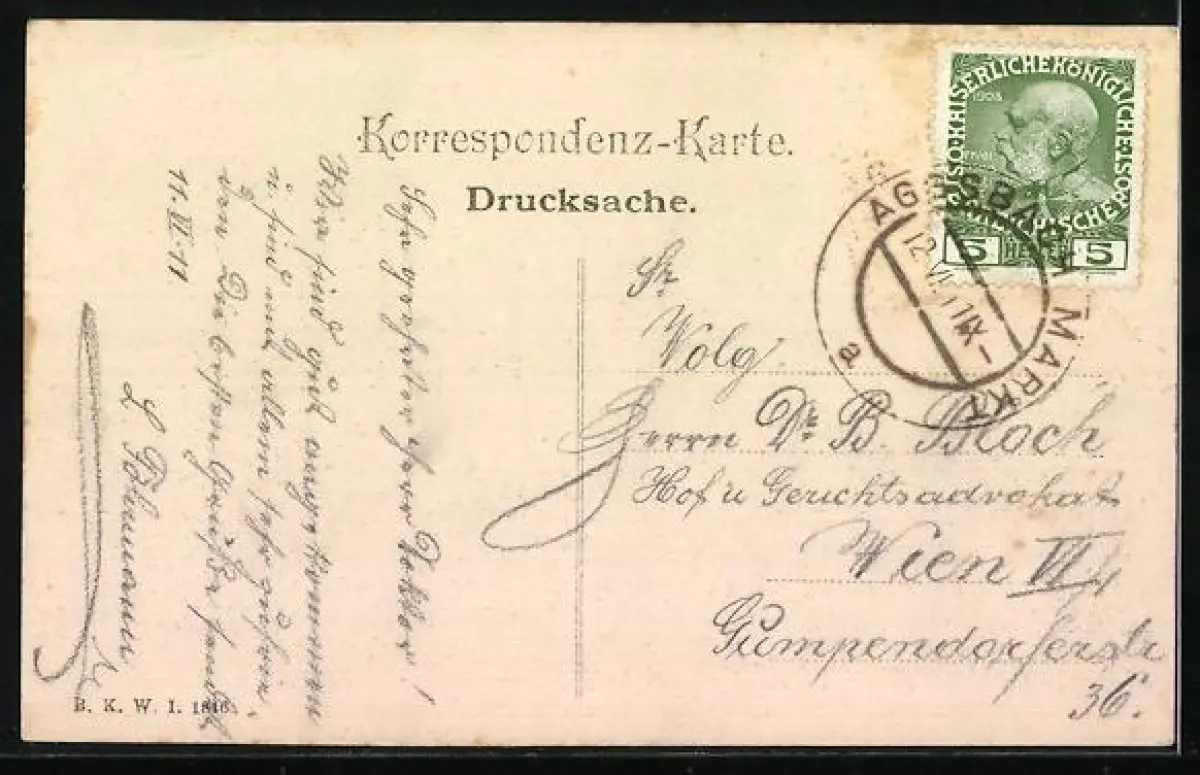 Korrespondenz-Karte.
Drucksache.
Sehr geehrter Herr Doktor!
Wir sind gut angekommen
u. sind mit allem sehr zufrieden.
Die besten Grüße sendet
11. VI. 11
L. Pohlmann
Sr
Wolg.
Herrn Dr. B. Bloch
Hof u Gerichtsadvokat
Wien VI
Gumpendorferstr
36.
B. K. W. I. 1816
KAISERLICHE KÖNIGLICHE
1908
5 HELLER 5
AGGSBACH MARKT
12 VI 11 IX
a